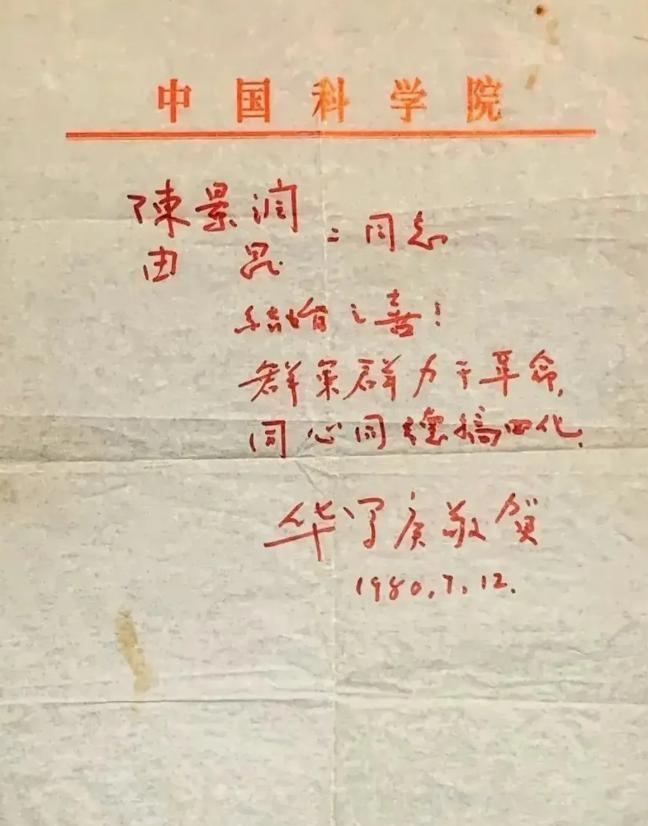 中国科学院
陳景润
由 昆
二同志
结婚之喜！
群策群力干革命，
同心同德搞四化。
华罗庚敬贺
1980.7.12.